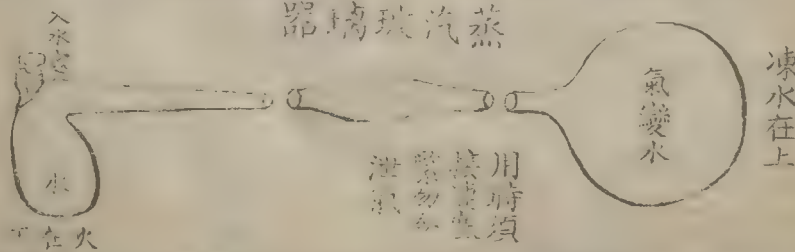 蒸汽玻璃器
凍水在上
氣變水
用時須
接
緊勿
泄氣
入水
水
火在下